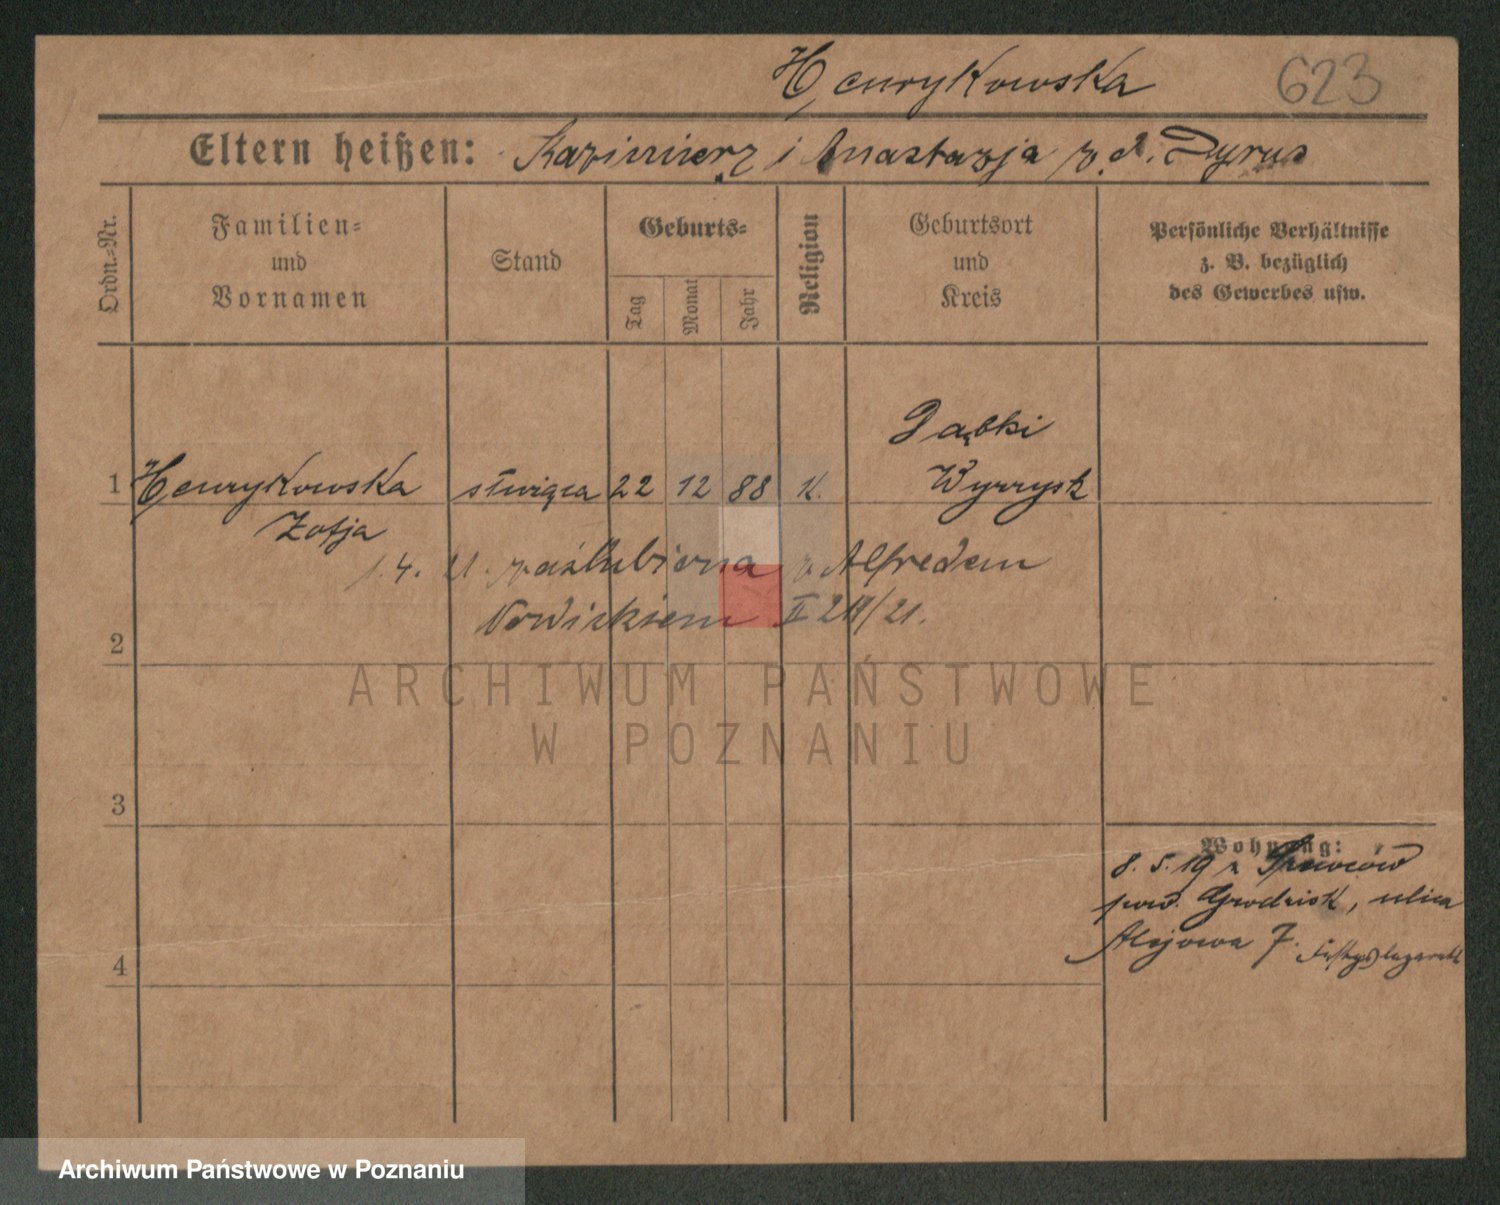 Henrykowska 623
Eltern heißen: Kazimierz i Anastazja z d. Dyrus
Ordn.-Nr.
Familien-
und
Vornamen
Stand
Geburts-
Tag
Monat
Jahr
Religion
Geburtsort
und
Kreis
Persönliche Verhältnisse
z. B. bezüglich
des Gewerbes usw.
Dąbki
1 Henrykowska służąca 22 12 88 K. Wyrzysk
Zofja
1.4. 21. zaślubiona z Alfredem
Nowickiem II 211/21.
2
ARCHIWUM PAŃSTWOWE
W POZNANIU
3
Wohnung:
8. 5. 19 z
pow. Grodzisk, ulica
Alejowa 7.
4
Archiwum Państwowe w Poznaniu